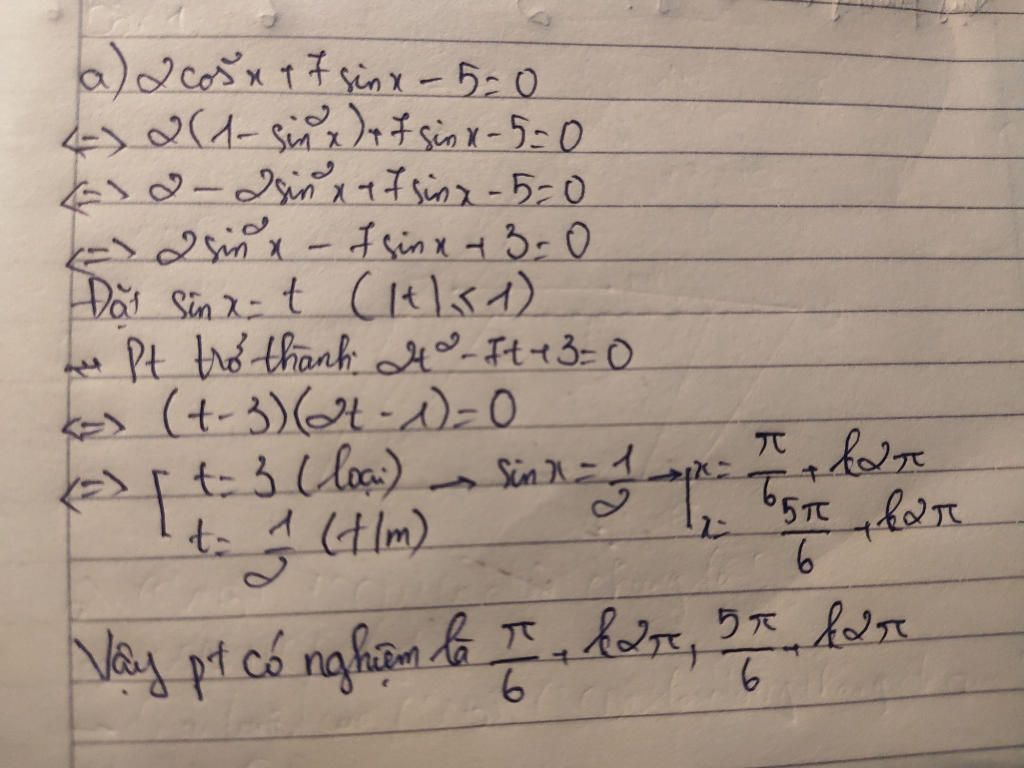 a) 2cos²x + 7sinx - 5 = 0
<=> 2(1 - sin²x) + 7sinx - 5 = 0
<=> 2 - 2sin²x + 7sinx - 5 = 0
<=> 2sin²x - 7sinx + 3 = 0
Đặt sinx = t (|t| ≤ 1)
→ Pt trở thành: 2t² - 7t + 3 = 0
<=> (t - 3)(2t - 1) = 0
<=> [ t = 3 (loại) → sinx = 1/2 → [ x = π/6 + k2π
t = 1/2 (t/m) x = 5π/6 + k2π
Vậy pt có nghiệm là π/6 + k2π, 5π/6 + k2π